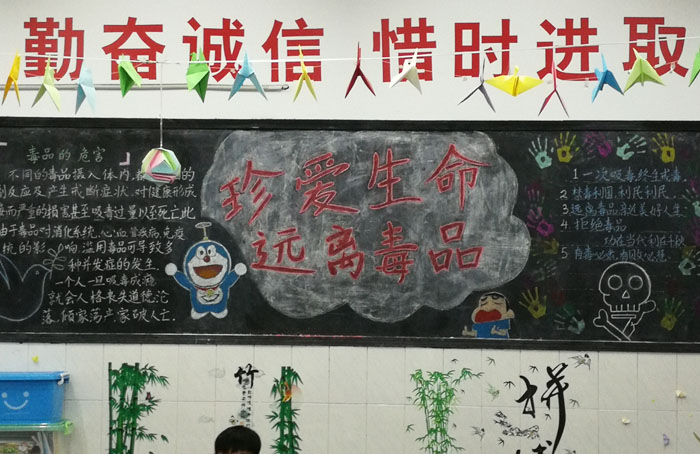 勤奋诚信 惜时进取
毒品的危害
不同的毒品摄入体内都
副反应及产生戒断症状.对健康形成
严重的损害甚至吸毒过量以至死亡.此
由于毒品对消化系统,心血管
统的影响 滥用毒品可导致多
种并发症的发生.
一个人一旦吸毒成瘾
就会人格丧失道德沦
落,倾家荡产,家破人亡.
珍爱生命
远离毒品
1 一次吸毒终生戒毒
2 禁毒利国,利民利民
3 远离毒品
4 拒绝毒品
功在当代利在千秋
5
竹
拼